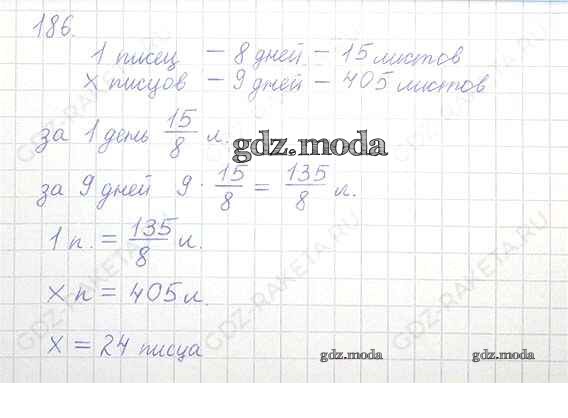 186.
1 писец – 8 дней – 15 листов
х писцов – 9 дней – 405 листов
за 1 день 15/8 л.
gdz.moda
за 9 дней 9 · 15/8 = 135/8 л.
1 п. = 135/8 л.
х п = 405 л.
х = 24 писца
gdz.moda
gdz.moda
GDZ-RAKETA.RU
GDZ-RAKETA.RU
GDZ-RAKETA.RU